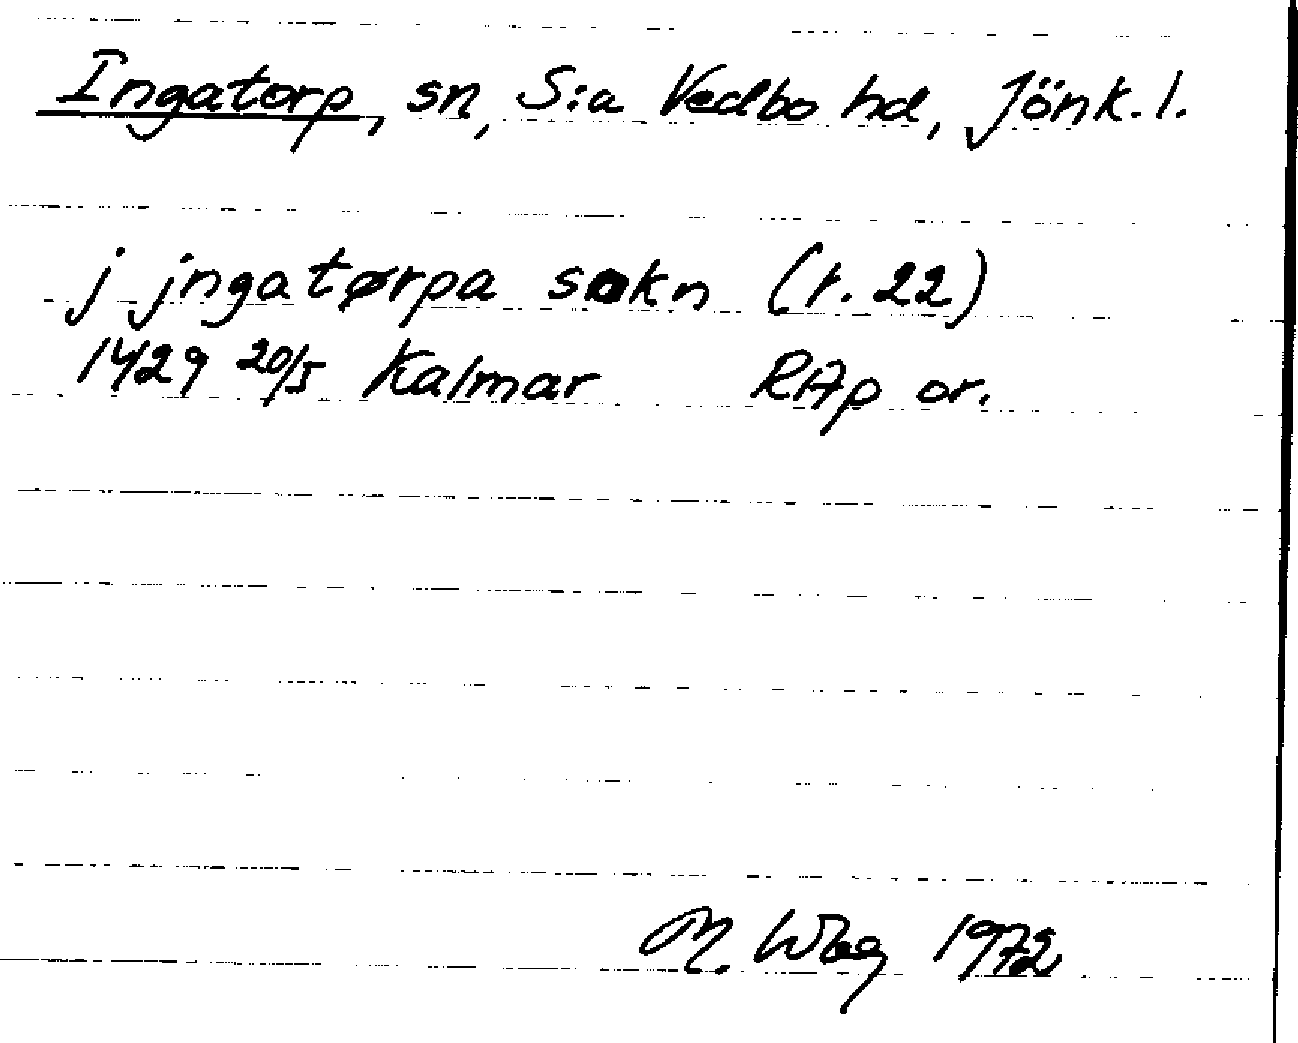 Ingatorp, sn, S:a Vedbo hd, Jönk. l.
j jngatørpa sokn (r. 22)
1429 20/5 Kalmar RAp or.
M. Wbg 1972